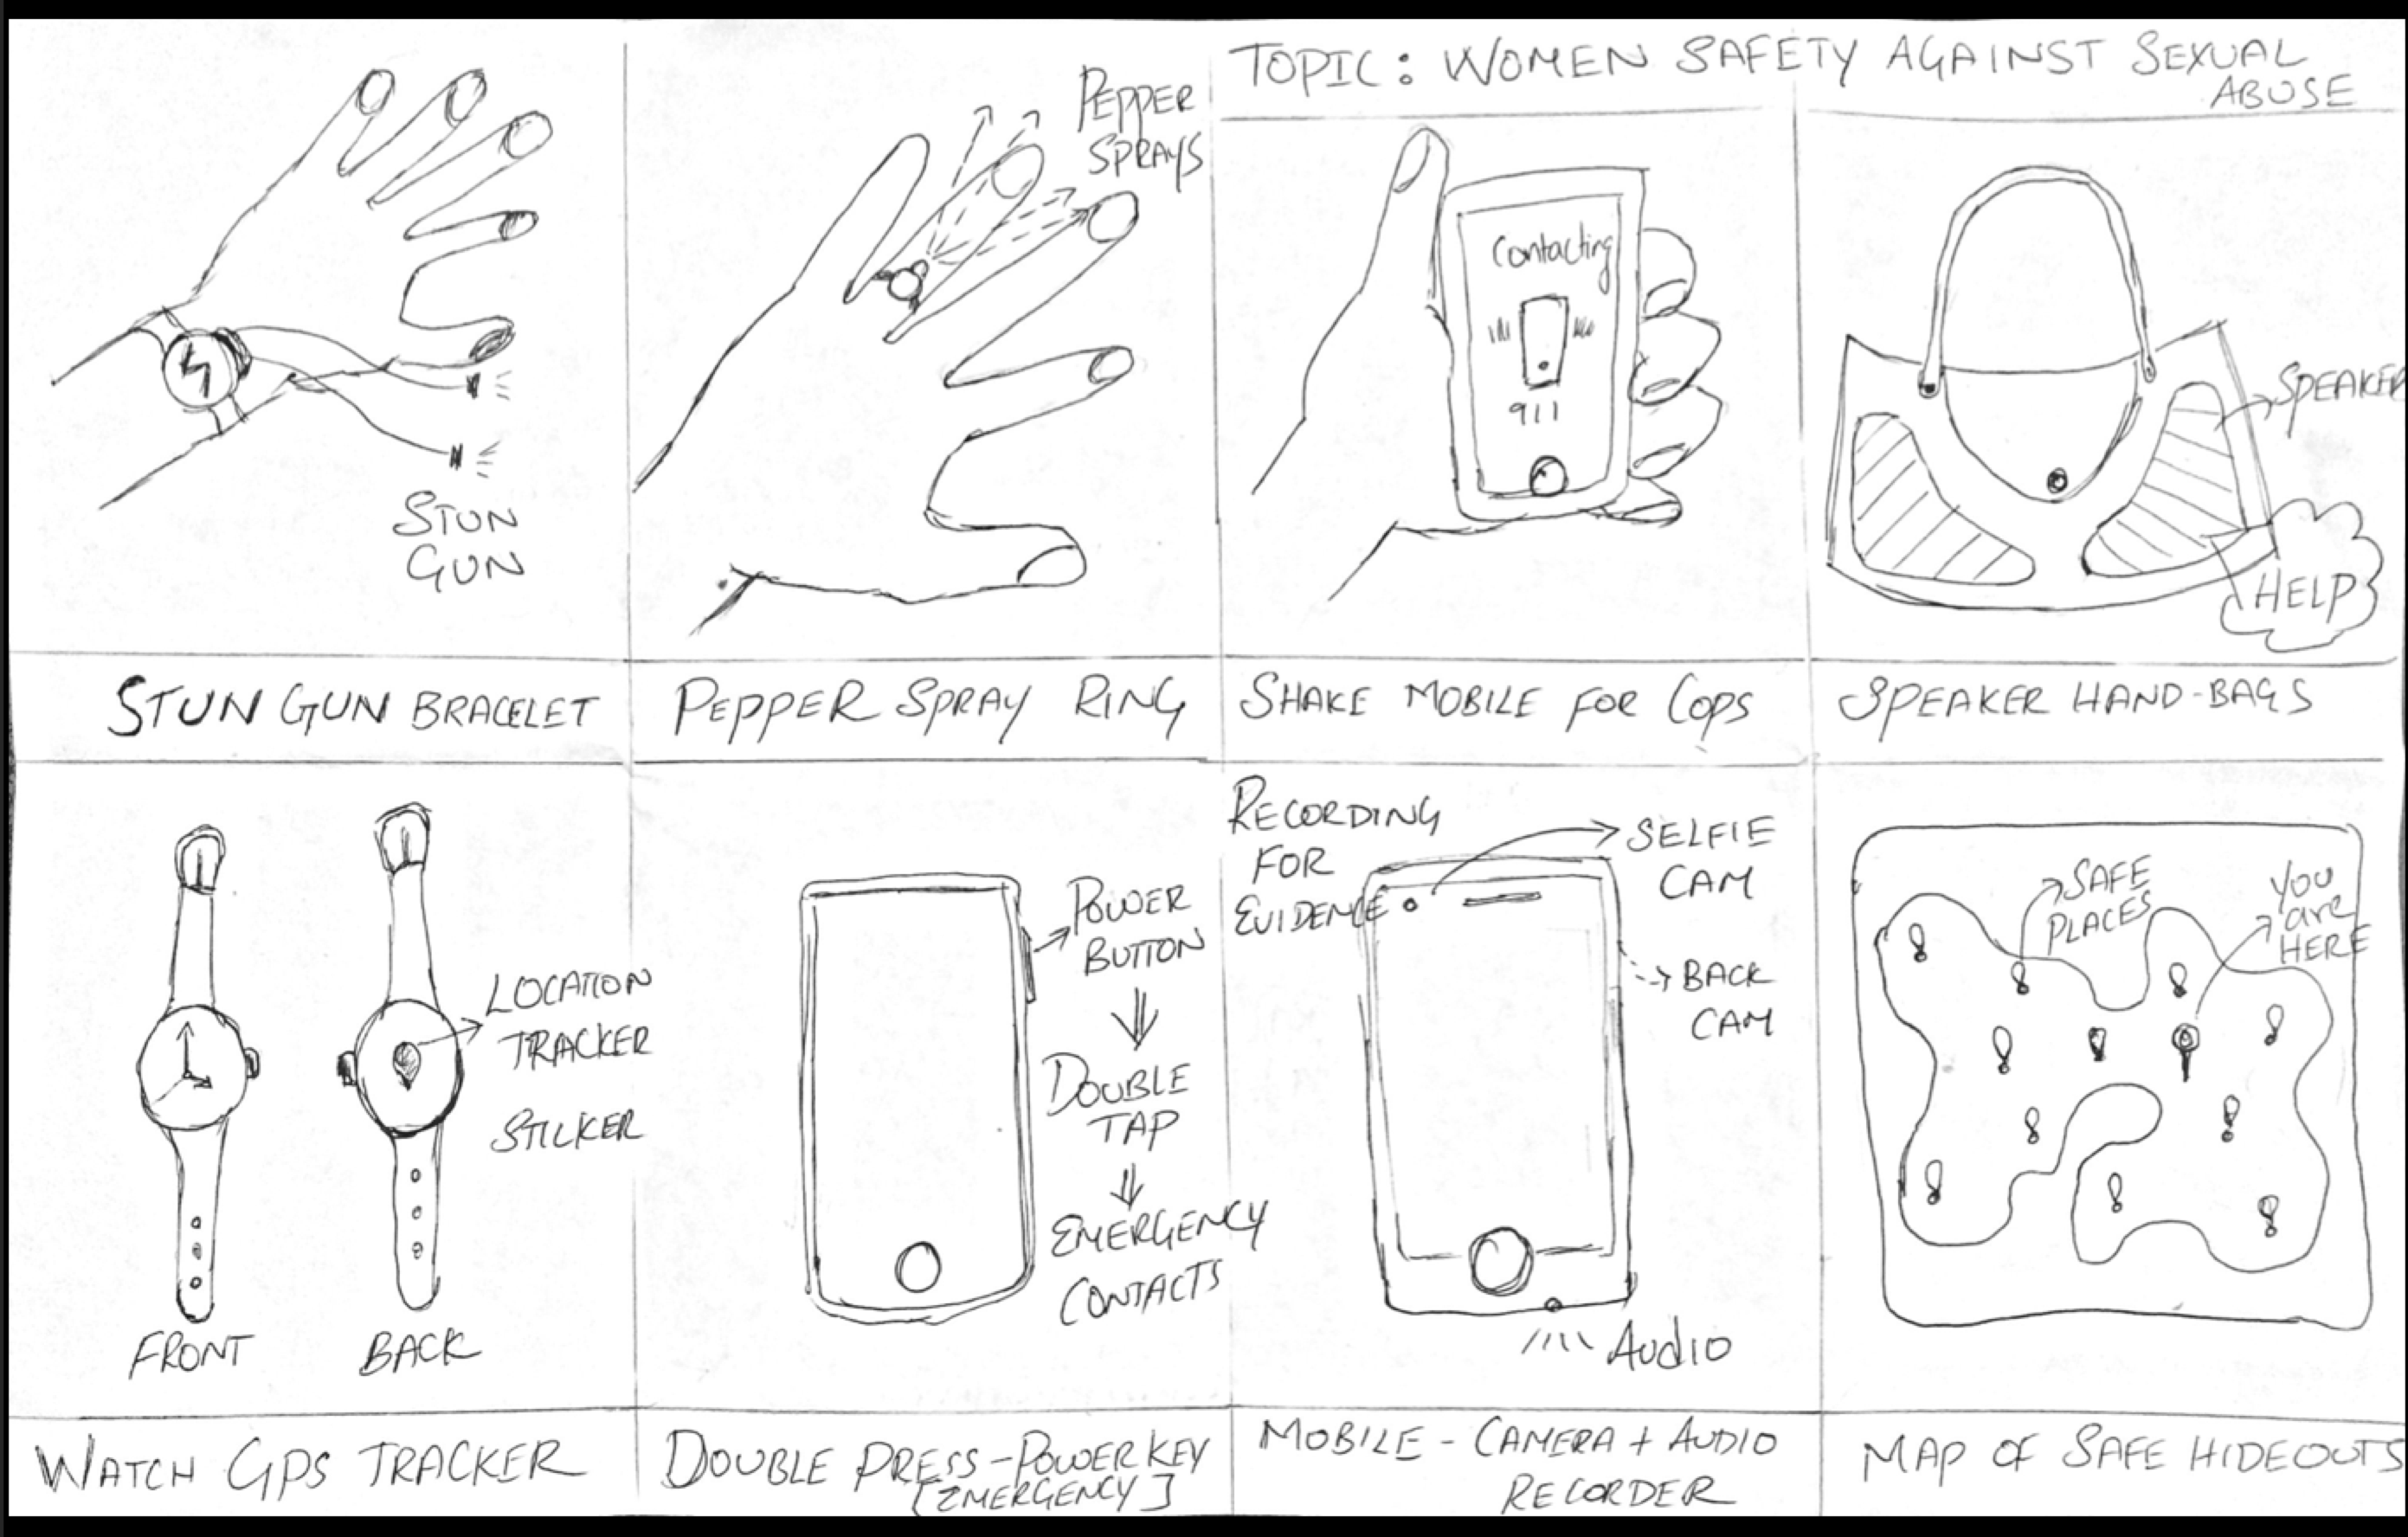 TOPIC: WOMEN SAFETY AGAINST SEXUAL
ABUSE
STUN
GUN
STUN GUN BRACELET
PEPPER
SPRAYS
PEPPER SPRAY RING
Contacting
911
SHAKE MOBILE FOR COPS
SPEAKER
HELP
SPEAKER HAND-BAGS
LOCATION
TRACKER
STICKER
FRONT
BACK
WATCH GPS TRACKER
POWER
BUTTON
DOUBLE
TAP
EMERGENCY
CONTACTS
DOUBLE PRESS-POWER KEY
[EMERGENCY]
RECORDING
FOR
EVIDENCE
SELFIE
CAM
BACK
CAM
AUDIO
MOBILE - CAMERA + AUDIO
RECORDER
SAFE
PLACES
YOU
are
HERE
MAP OF SAFE HIDEOUTS